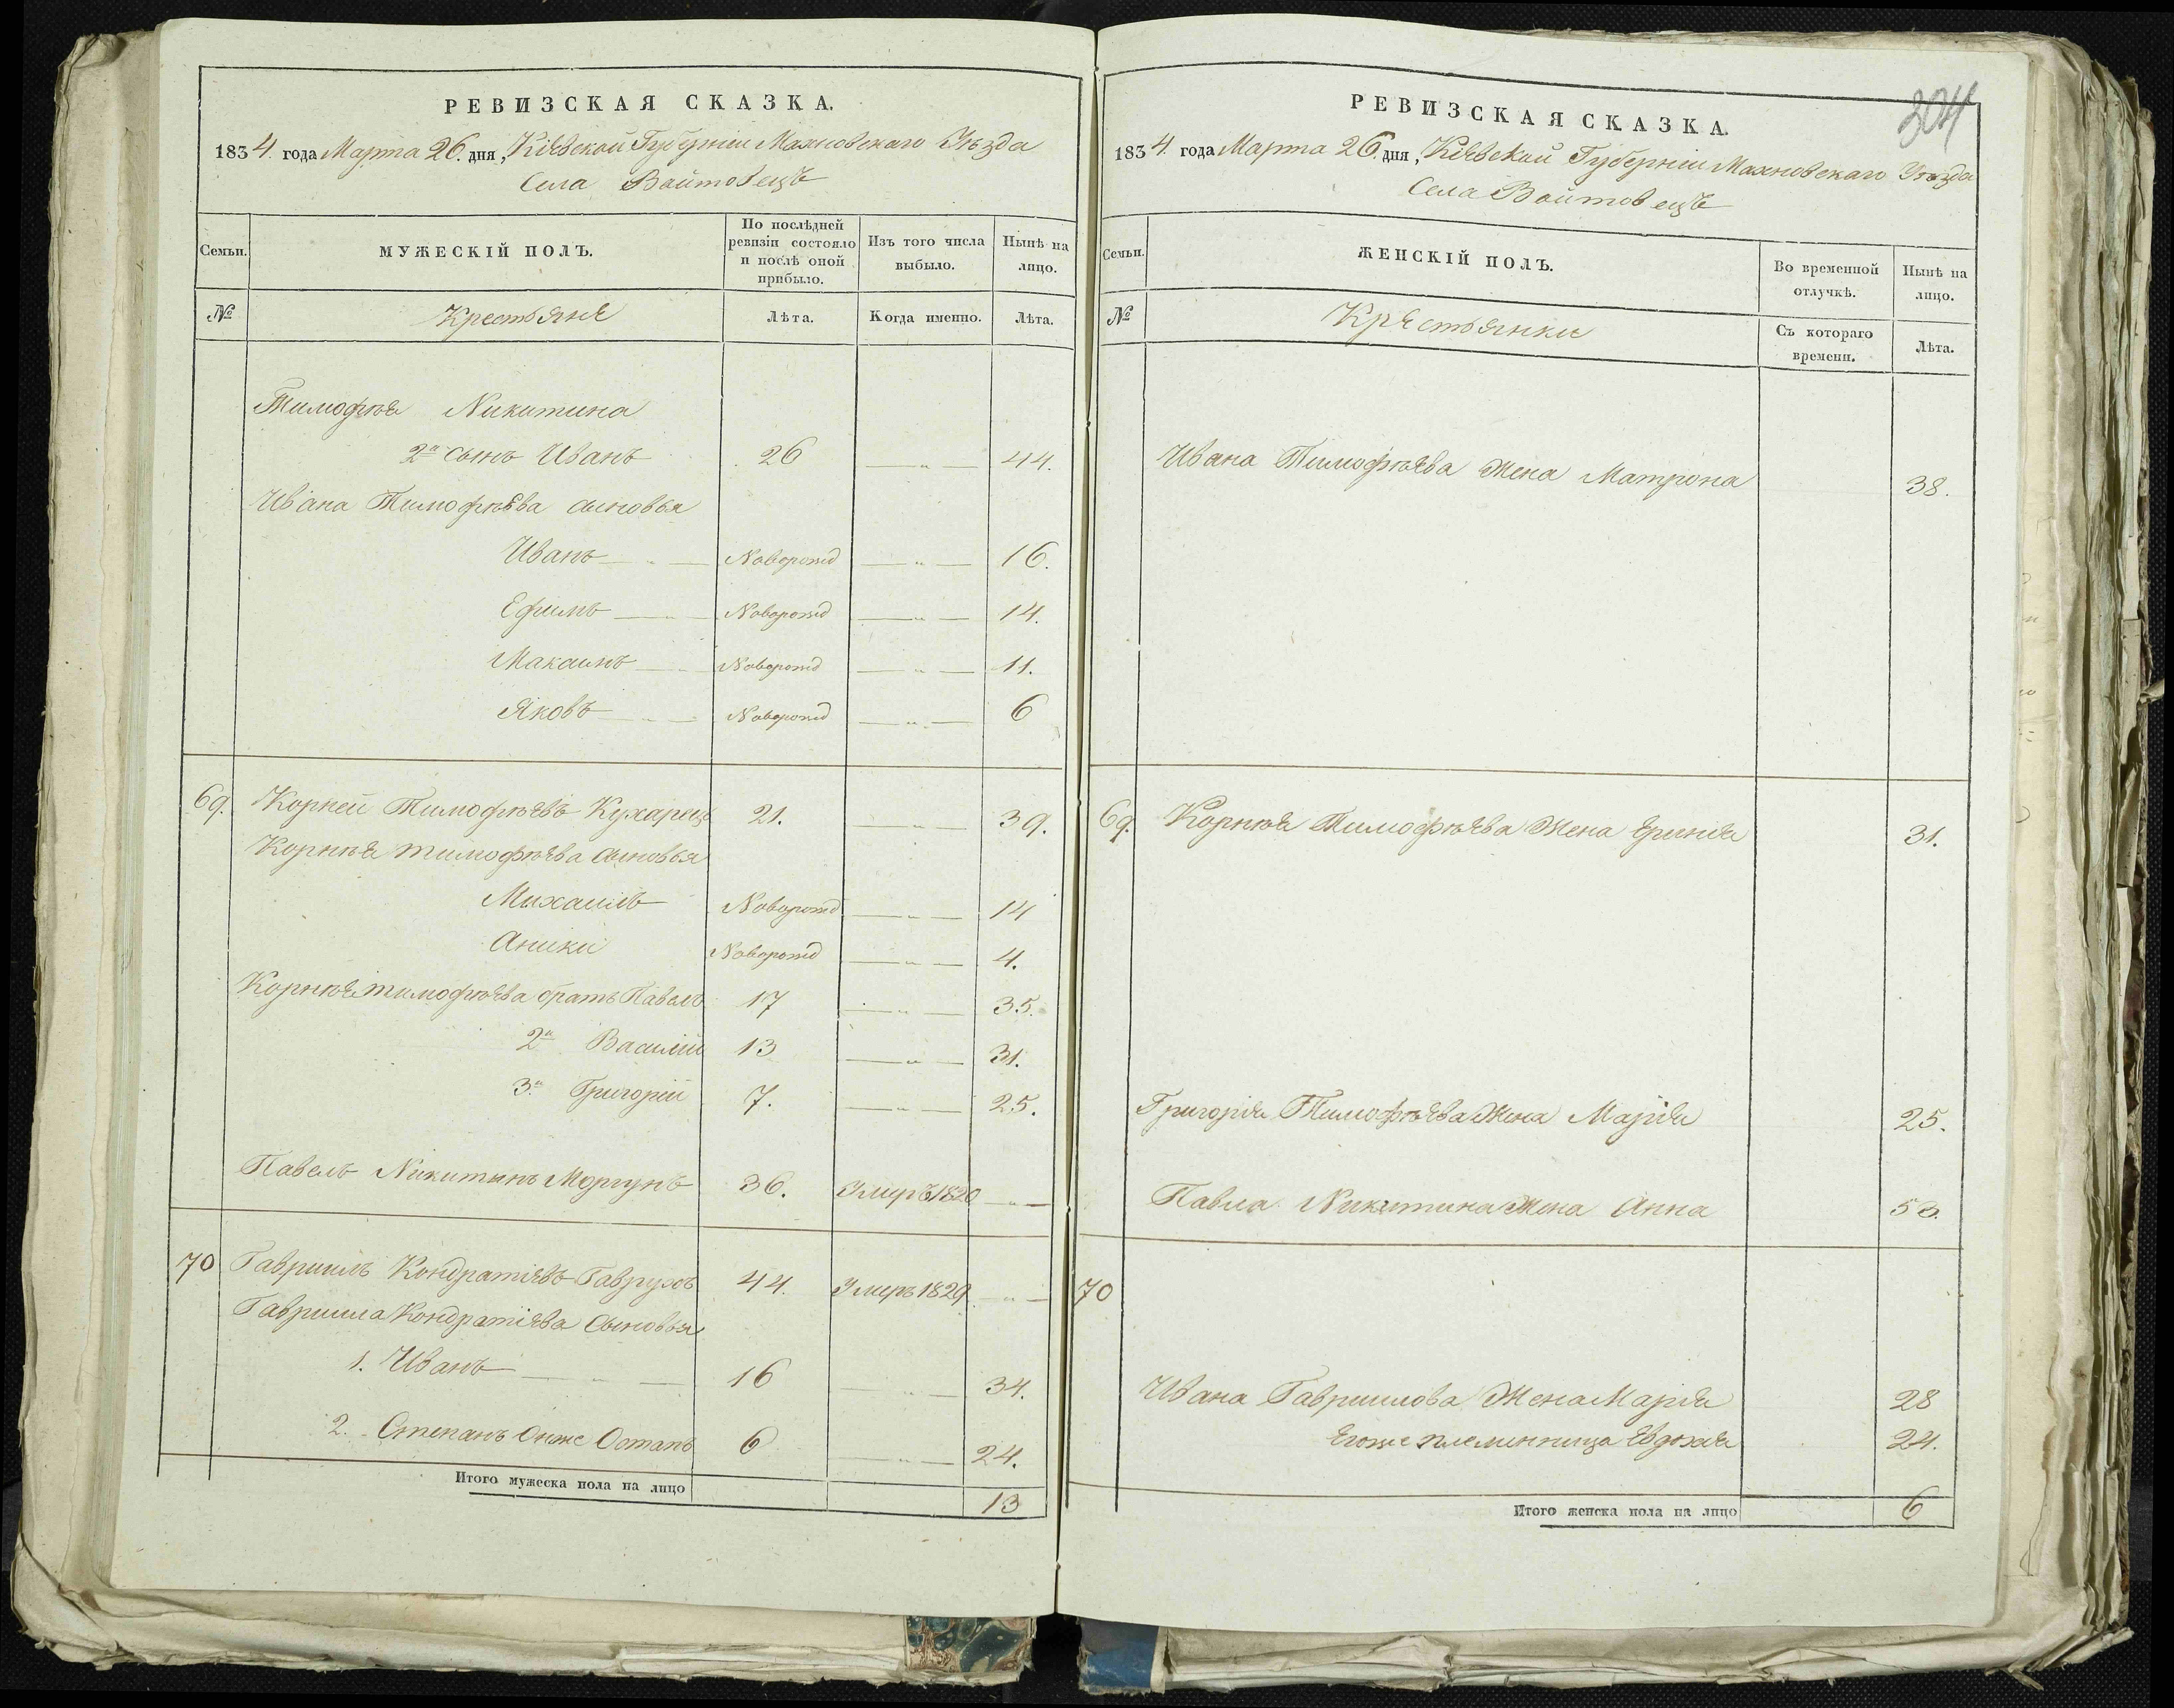 РЕВИЗСКАЯ СКАЗКА.
1834. года Марта 26. дня, Кіевской Губерніи Махновскаго Уѣзда
Села Войтовецъ
Семьи. МУЖЕСКІЙ ПОЛЪ. По послѣдней ревизіи состояло и послѣ оной прибыло. Изъ того числа выбыло. Нынѣ на лицо.
№ Крестьяне Лѣта. Когда именно. Лѣта.
Тимофѣя Никитина
2й сынъ Иванъ 26 — „ — 44.
Ивана Тимофѣева сыновья
Иванъ — „ — Новорожд — „ — 16.
Ефимъ — „ — Новорожд — „ — 14.
Максимъ — „ Новорожд — „ — 11.
Яковъ — „ — Новорожд — „ — 6
69. Корней Тимофѣевъ Кухарецъ 21. — „ — 39.
Корнѣя Тимофѣева сыновья
Михаилъ Новорожд — „ — 14
Аники Новорожд — „ — 4.
Корнѣя Тимофѣева братъ Павелъ 17 — „ — 35.
2й Василій 13 — „ — 31.
3й Григорій 7. — „ — 25.
Павелъ Никитинъ Моргунъ 36. Умеръ 1820 — „ —
70 Гавриилъ Кондратіевъ Гаврухъ 44. Умеръ 1829 — „ —
Гавриила Кондратіева Сыновья
1. Иванъ — „ — 16 — „ — 34.
2. Степанъ Онже Остапъ 6 — „ — 24.
Итого мужеска пола на лицо 13
304
РЕВИЗСКАЯ СКАЗКА.
1834. года Марта 26. дня, Кіевской Губерніи Махновскаго Уѣзда
Села Войтовецъ
Семьи. ЖЕНСКІЙ ПОЛЪ. Во временной отлучкѣ. Нынѣ на лицо.
№ Крестьянки Съ котораго времени. Лѣта.
Ивана Тимофѣева Жена Матрона 38.
69. Корнѣя Тимофѣева Жена Ериня 31.
Григорія Тимофѣева Жена Марія 25.
Павла Никитина Жена Анна
70
Ивана Гавриилова Жена Марія 28
Егоже племенница Евдохія 24.
Итого женска пола на лицо 6